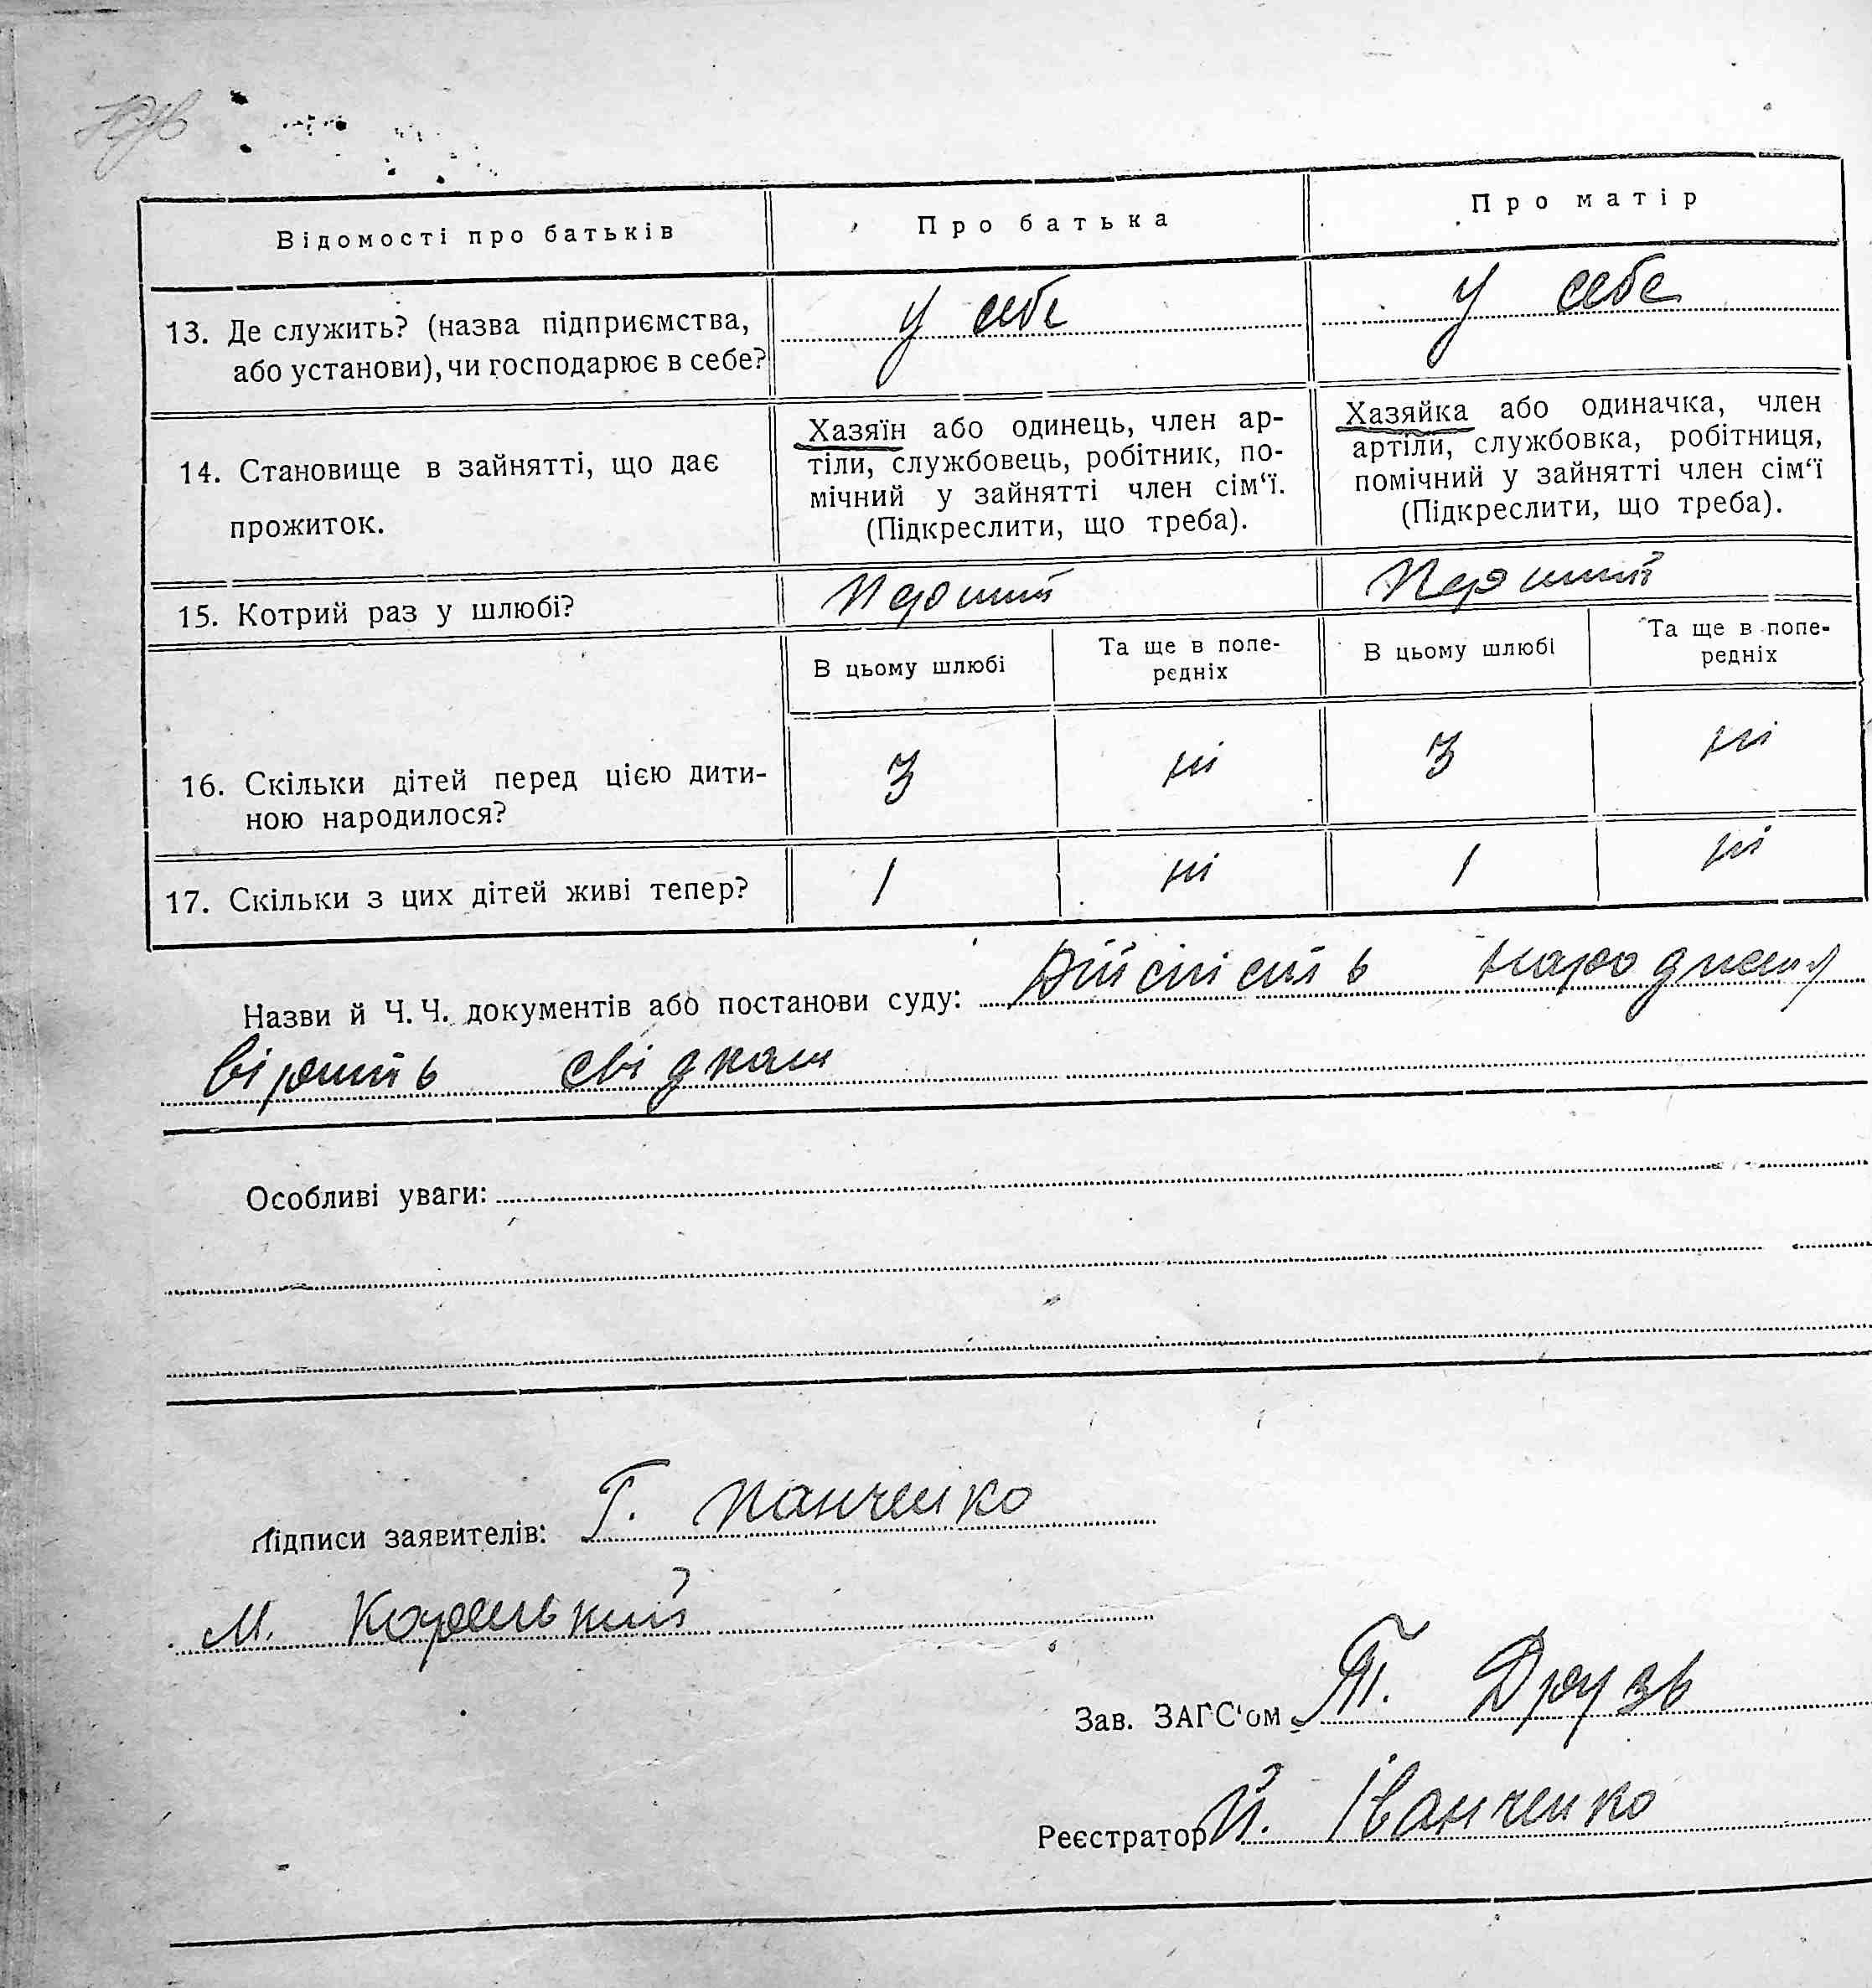 Відомості про батьків
Про батька
Про матір
13. Де служить? (назва підприємства,
або установи), чи господарює в себе?
у себе
у себе
14. Становище в зайнятті, що дає
прожиток.
Хазяїн або одинець, член ар-
тіли, службовець, робітник, по-
мічний у зайнятті член сім‘ї.
(Підкреслити, що треба).
Хазяйка або одиначка, член
артіли, службовка, робітниця,
помічний у зайнятті член сім‘ї
(Підкреслити, що треба).
15. Котрий раз у шлюбі?
Перший
Перший
В цьому шлюбі
Та ще в попе-
редніх
В цьому шлюбі
Та ще в попе-
редніх
16. Скільки дітей перед цією дити-
ною народилося?
3
ні
3
ні
17. Скільки з цих дітей живі тепер?
1
ні
1
ні
Назви й Ч. Ч. документів або постанови суду: Дійсність народження
вірить свідкам
Особливі уваги:
Підписи заявителів: Г. Панченко
М.
Зав. ЗАГС‘ом Т. Друзь
Реєстратор Й. Іванченко